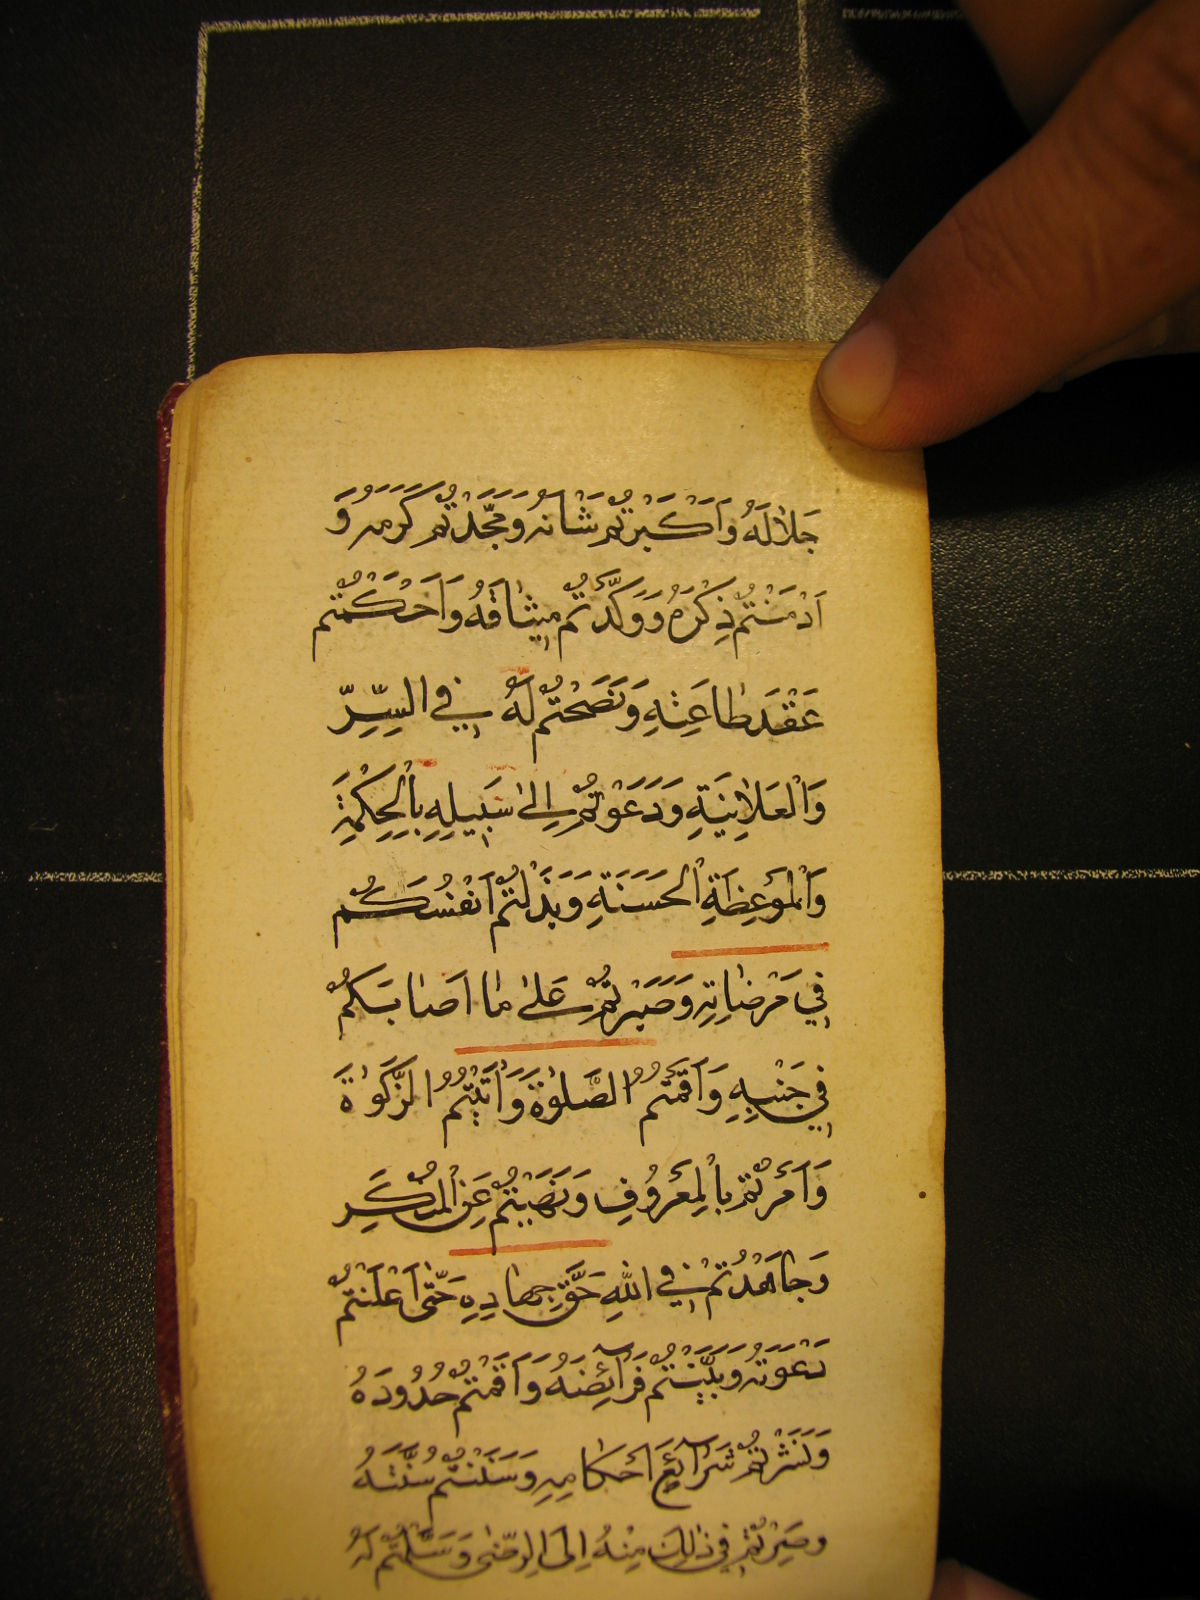 جَلَالَهُ وَاَكْبَرْتُمْ شَانَهُ وَمَجَّدْتُمْ كَرَمَهُ وَ
اَدْمَنْتُمْ ذِكْرَهُ وَوَكَّدْتُمْ مِيثَاقَهُ وَاَحْكَمْتُمْ
عَقْدَ طَاعَتِهِ وَنَصَحْتُمْ لَهُ فِي السِّرِّ
وَالْعَلَانِيَةِ وَدَعَوْتُمْ اِلىٰ سَبِيلِهِ بِالْحِكْمَةِ
وَالْمَوْعِظَةِ الْحَسَنَةِ وَبَذَلْتُمْ اَنْفُسَكُمْ
فِي مَرْضَاتِهِ وَصَبَرْتُمْ عَلىٰ مَا اَصَابَكُمْ
فِي جَنْبِهِ وَاَقَمْتُمُ الصَّلٰوةَ وَآتَيْتُمُ الزَّكٰوةَ
وَاَمَرْتُمْ بِالْمَعْرُوفِ وَنَهَيْتُمْ عَنِ الْمُنْكَرِ
وَجَاهَدْتُمْ فِي اللّٰهِ حَقَّ جِهَادِهِ حَتّٰى اَعْلَنْتُمْ
دَعْوَتَهُ وَبَيَّنْتُمْ فَرَآئِضَهُ وَاَقَمْتُمْ حُدُودَهُ
وَنَشَرْتُمْ شَرَآئِعَ اَحْكَامِهِ وَسَنَنْتُمْ سُنَّتَهُ
وَصِرْتُمْ فِي ذٰلِكَ مِنْهُ اِلَى الرِّضٰى وَسَلَّمْتُمْ لَهُ